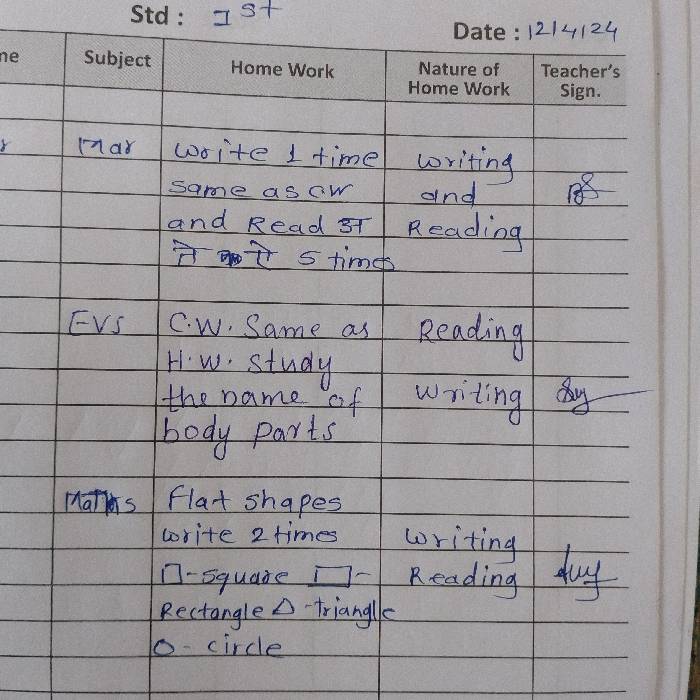 Std : Ist
Date : 12/4/24
me Subject Home Work Nature of Home Work Teacher's Sign.
Mar Write 1 time writing
same as cw and
and Read अ Reading
ते 5 times
EVS C.W. Same as Reading
H.W. study
the name of writing
body parts
Maths Flat shapes
write 2 times writing
□-square ▭- Reading
Rectangle △-triangle
O- circle